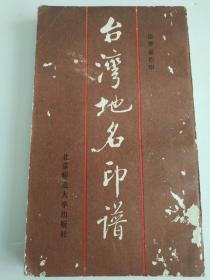 台湾地名印谱
北京师范大学出版社